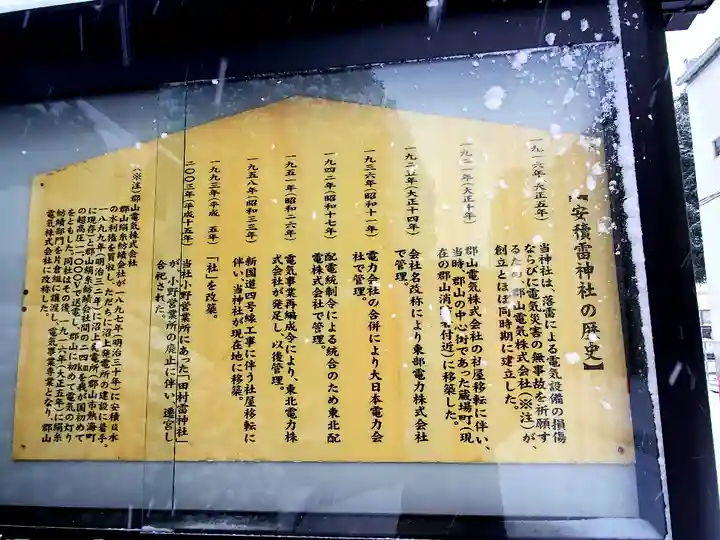 【安積雷神社の歴史】
一九一六年(大正五年)
当神社は、落雷による電気設備の損傷
ならびに電気災害の無事故を祈願す
るため郡山電気株式会社(※注)が、
創立とほぼ同時期に建立した。
一九二一年(大正十年)
郡山電気株式会社の社屋移転に伴い、
当時、郡山の中心街であった蔵場町(現
在の郡山消防署付近)に移築した。
一九二五年(大正十四年)
会社名改称により東部電力株式会社
で管理。
一九三六年(昭和十一年)
電力会社の合併により大日本電力会
社で管理。
一九四二年(昭和十七年)
配電統制令による統合のため東北配
電株式会社で管理。
一九五一年(昭和二六年)
電気事業再編成令により、東北電力株
式会社が発足し、以後管理。
一九五八年(昭和三三年)
新国道四号線工事に伴う社屋移転に
伴い、当神社が現在地に移築。
一九九三年(平成 五年)
「社」を改築。
二〇〇三年(平成十五年)
当社小野営業所にあった「田村雷神社」
が、小野営業所の廃止に伴い、遷宮し
合祀された。
(※注)郡山電気株式会社
郡山絹糸紡績会社が一八九七年(明治三十年)に安積疎水
の水利権を買収し、ただちに沼上発電所の建設に着手。
一八九九年(明治三二年)に沼上発電所(郡山市熱海町
に現存)と郡山絹糸紡績会社間、二四kmを我が国初めて
の超高圧一一、〇〇〇Vで送電し、郡山に初めて電気の灯り
をともした。同社はその後、一九一六年(大正五年)に絹糸
紡績部門を片倉組に譲渡し、電気事業専業となり、郡山
電気株式会社に改称した。